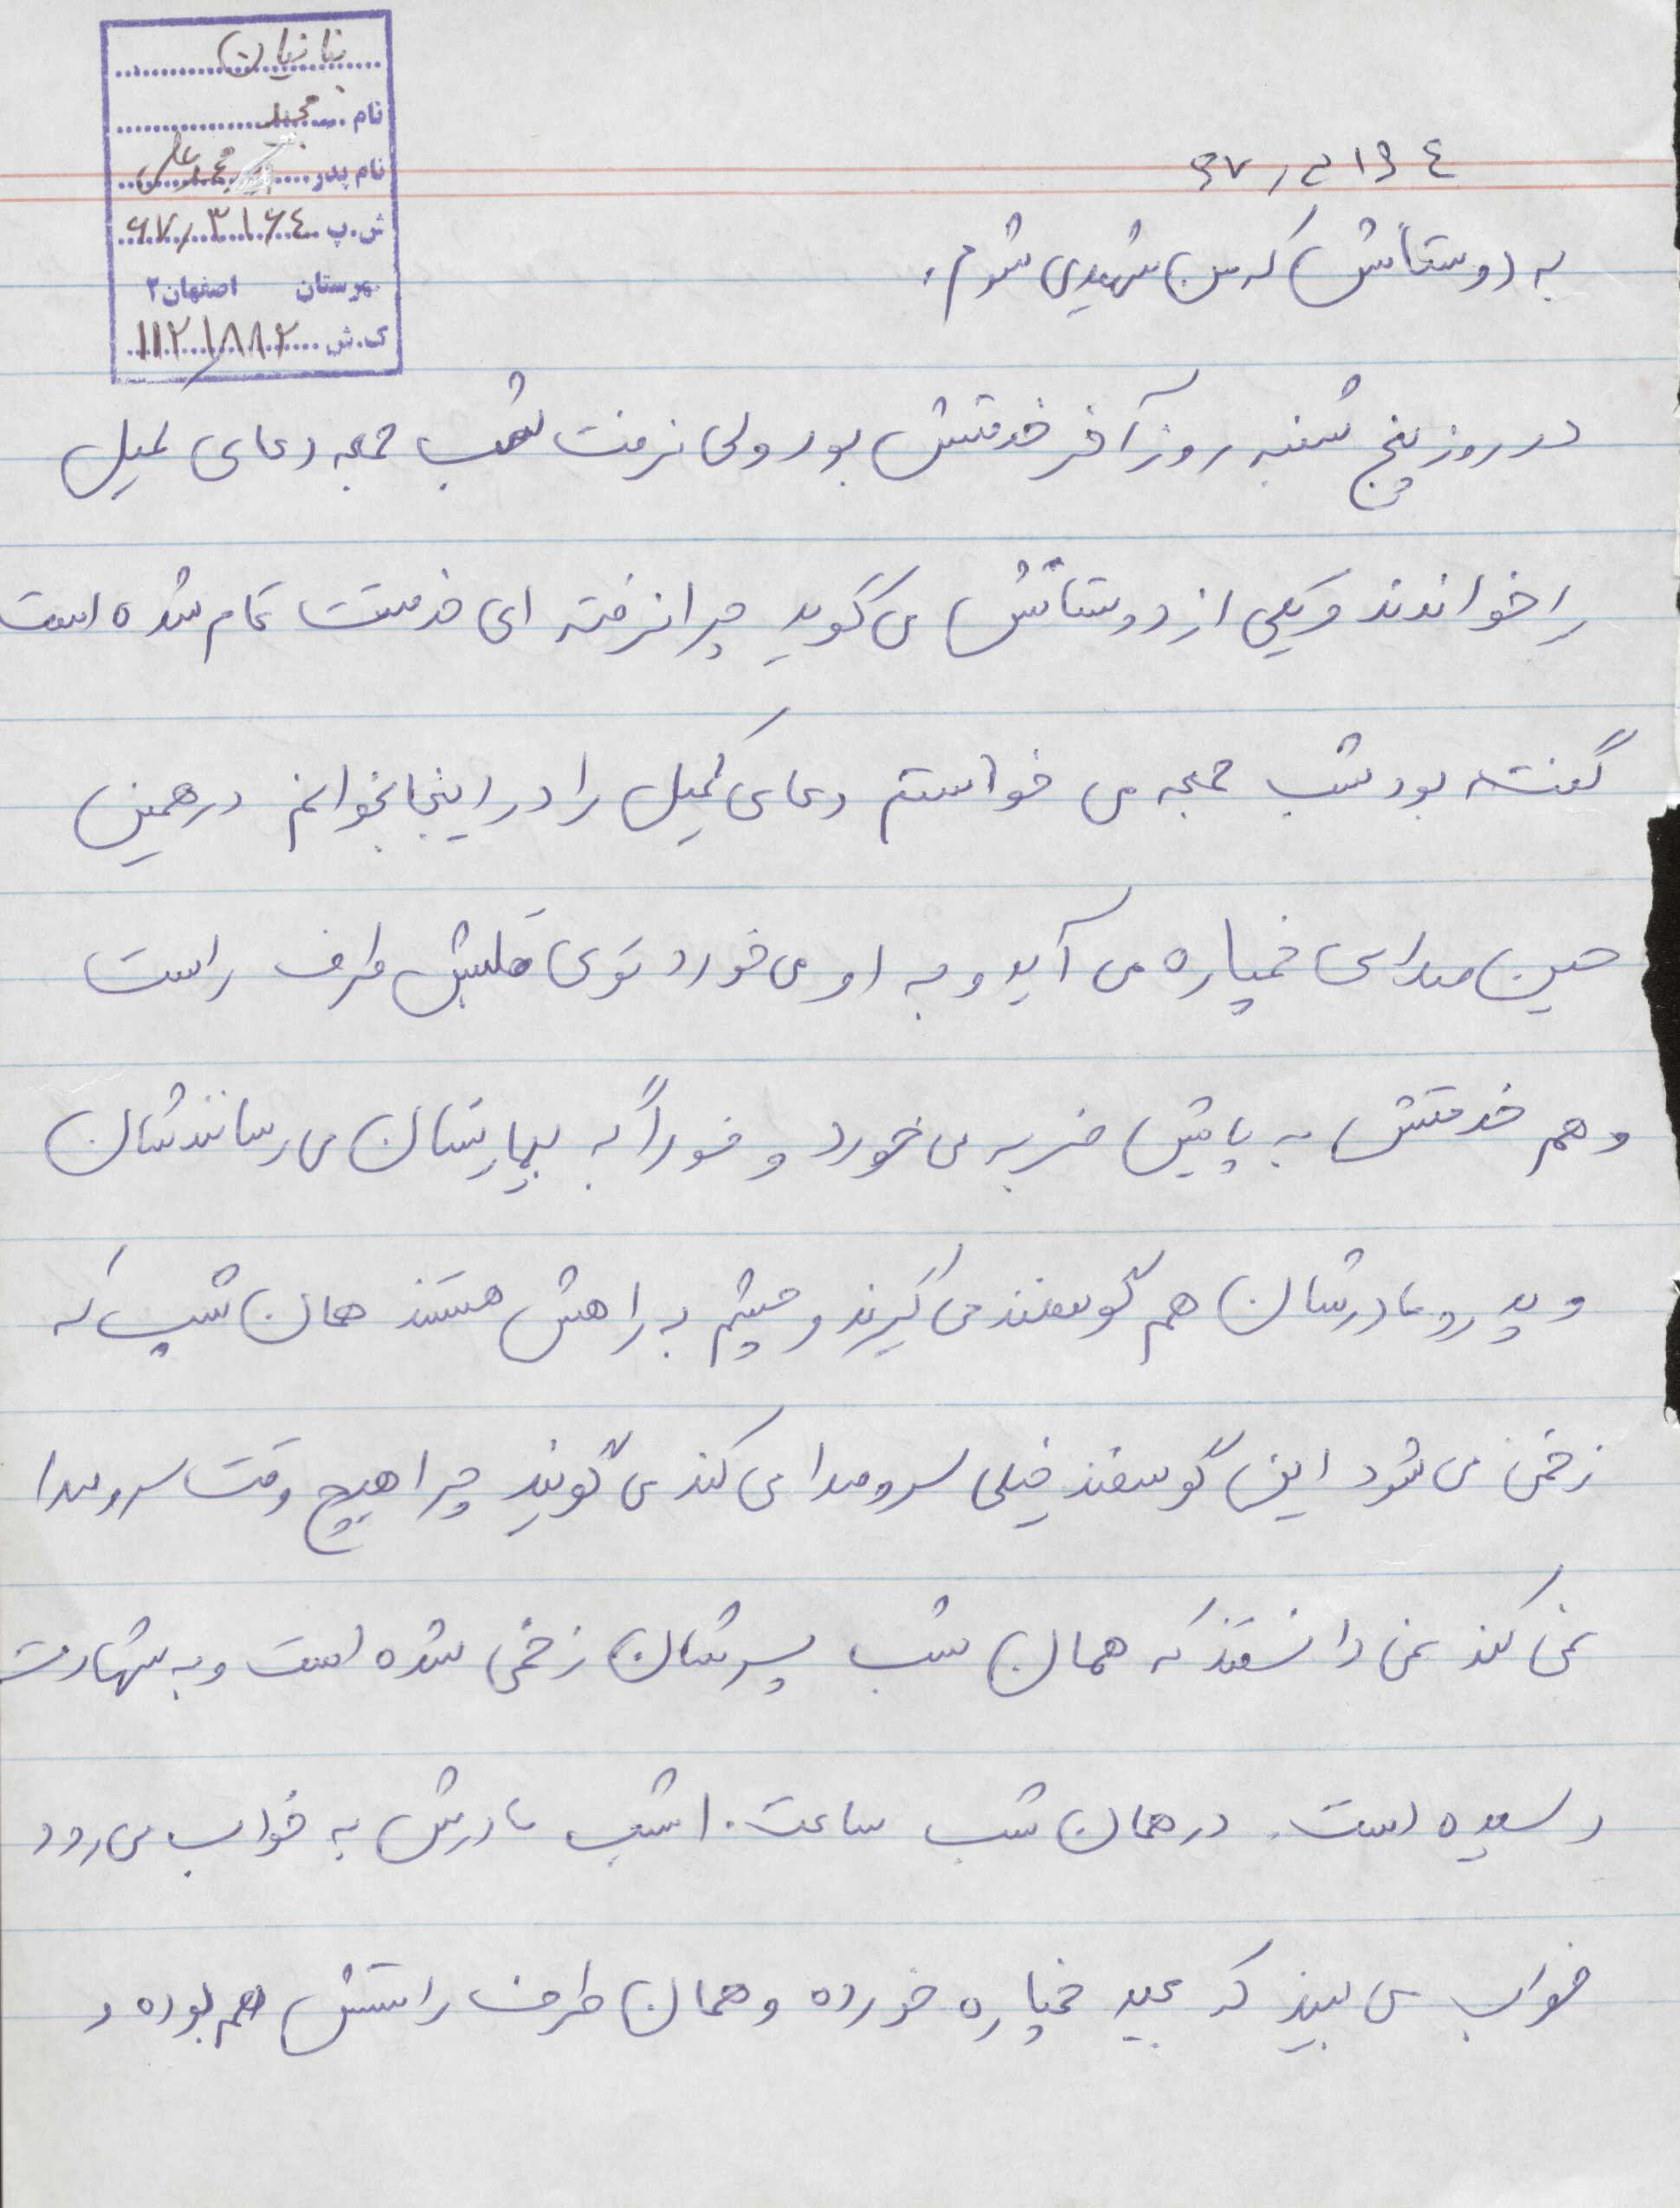 بنانیان
نام مجید
نام پدر محمدعلی
ش.پ ۶۷٫۳۱۶۴
بهرستان اصفهان ۲
ک.ش ۱۱۲۱۸۸۲
به دوستانش که من شهیدی شوم.
در روز پنج شنبه روز آخر خدمتش بود ولی نرفت شب جمعه دعای کمیل
را خواندند و یکی از دوستانش می گوید چرا نرفته ای خدمتت تمام شده است
گفته بود شب جمعه می خواستم دعای کمیل را در اینجا بخوانم در همین
حین صدای خمپاره می آید و به او می خورد توی قلبش طرف راست
و هم خدمتش به پایش ضربه می خورد و فوراً به بیمارستان می رسانندشان
و پدر و مادرشان هم گوسفند می گیرند و چشم به راهش هستند همان شب که
زخمی می شود این گوسفند خیلی سروصدا می کند می گویند چرا هیچ وقت سروصدا
نمی کند نمی دانستند که همان شب پسرشان زخمی شده است و به شهادت
رسیده است. در همان شب ساعت ۱۰ شب مادرش به خواب می رود
خواب می بیند که مجید خمپاره خورده و همان طرف راستش هم بوده و